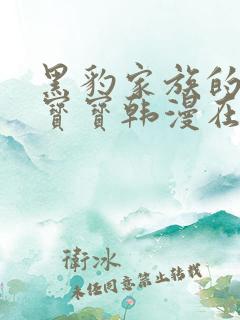 黑豹家族的
寳寳韩漫在
衛冰
未经同意禁止转载